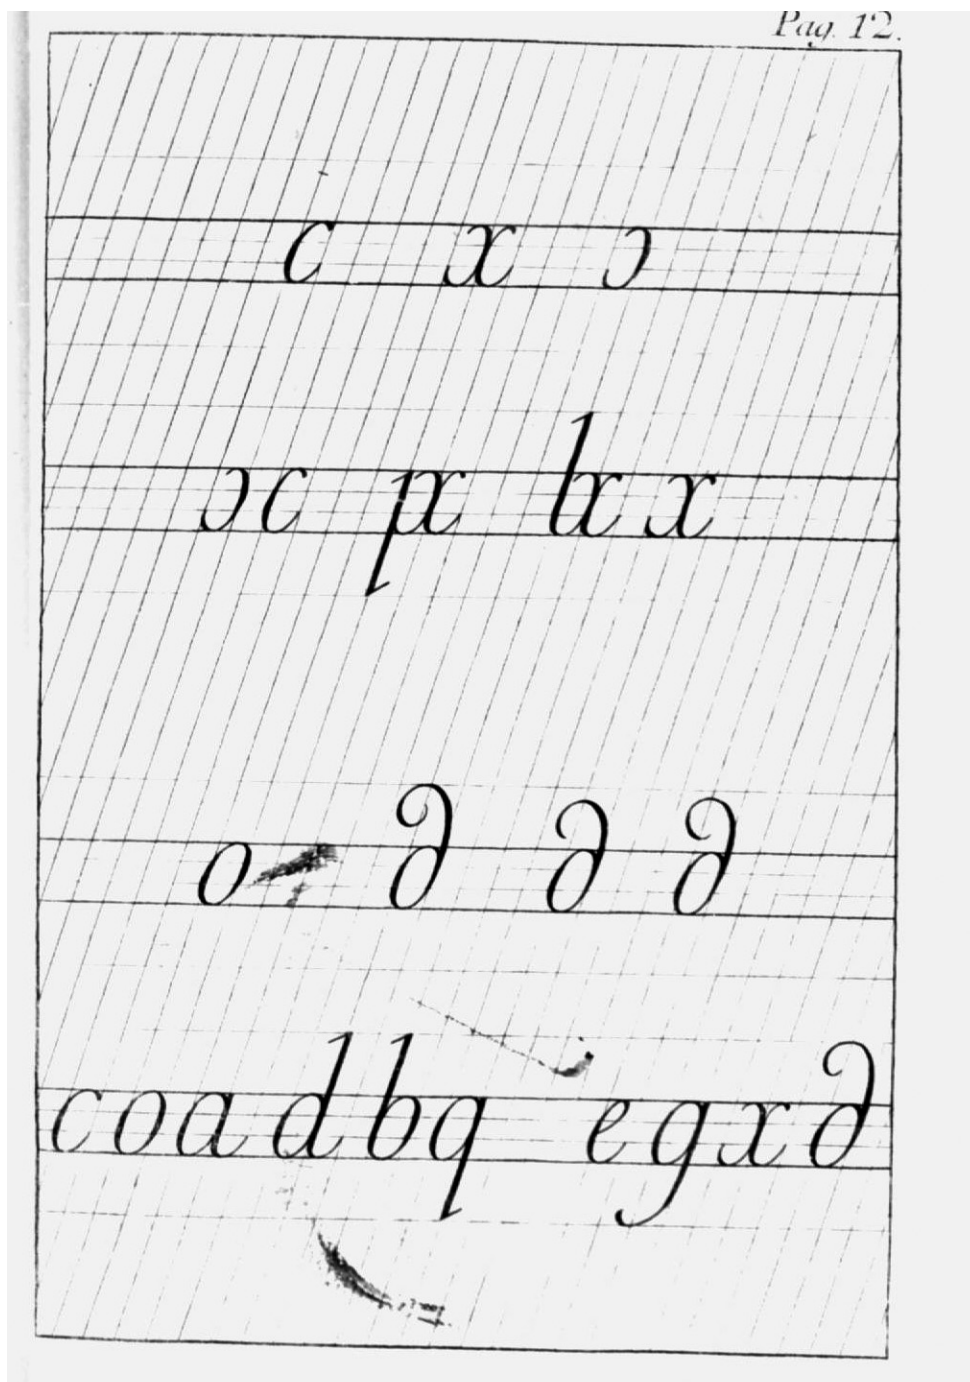 Pag. 12.
c x ɔ
ɔc px lx x
o ∂ ∂ ∂
coadbq egx∂